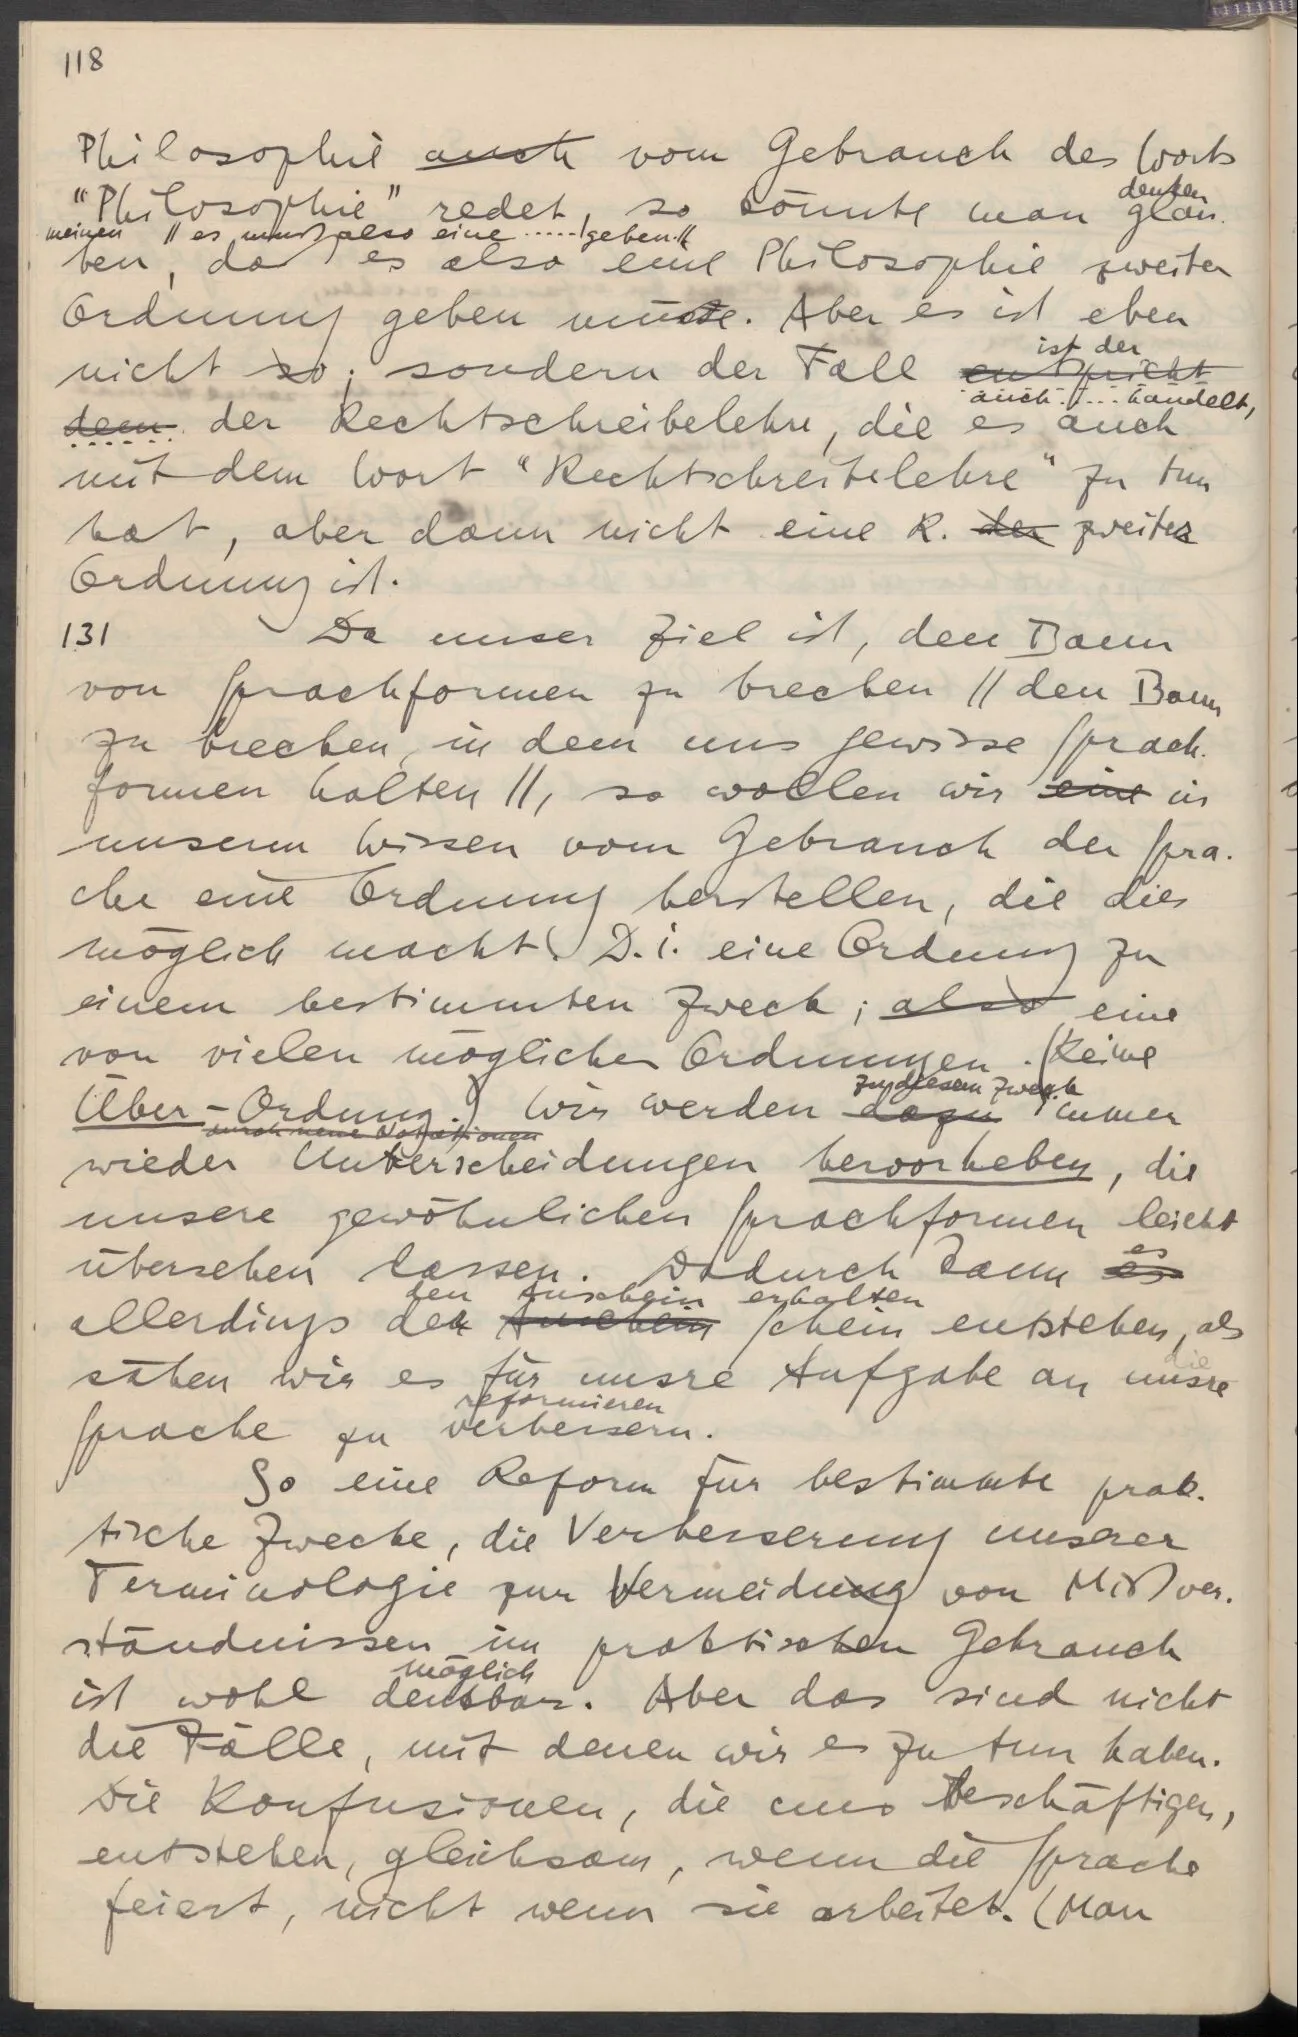 118
Philosophie auch vom Gebrauch des Worts
denken
"Philosophie" redet, so könnte man glau-
meinen || es muß also eine ..... geben. ||
ben, daß es also eine Philosophie zweiter
Ordnung geben müßte. Aber es ist eben
ist der
nicht so; sondern der Fall entspricht
auch .... handelt,
dem der Rechtschreibelehre, die es auch
mit dem Wort "Rechtschreibelehre" zu tun
hat, aber dann nicht eine R. der zweiter
Ordnung ist.
131 Da unser Ziel ist, den Bann
von Sprachformen zu brechen || den Bann
zu brechen, in dem uns gewisse Sprach-
formen halten ||, so wollen wir eine in
unserm Wissen vom Gebrauch der Spra-
che eine Ordnung herstellen, die dies
möglich macht. D.i. eine Ordnung zu
einem bestimmten Zweck; also eine
von vielen möglichen Ordnungen. (Keine
zu diesem Zweck
Über-Ordnung.) Wir werden dazu immer
durch neue Notationen
wieder Unterscheidungen hervorheben, die
unsere gewöhnlichen Sprachformen leicht
es
übersehen lassen. Dadurch kann es
den Anschein erhalten
allerdings der Anschein Schein entstehen, als
die
sähen wir es für unsre Aufgabe an unsre
reformieren
Sprache zu verbessern.
So eine Reform für bestimmte prak-
tische Zwecke, die Verbesserung unserer
Terminologie zur Vermeidung von Mißver-
ständnissen im praktischen Gebrauch
möglich
ist wohl denkbar. Aber das sind nicht
die Fälle, mit denen wir es zu tun haben.
Die Konfusionen, die uns beschäftigen,
entstehen, gleichsam, wenn die Sprache
feiert, nicht wenn sie arbeitet. (Man